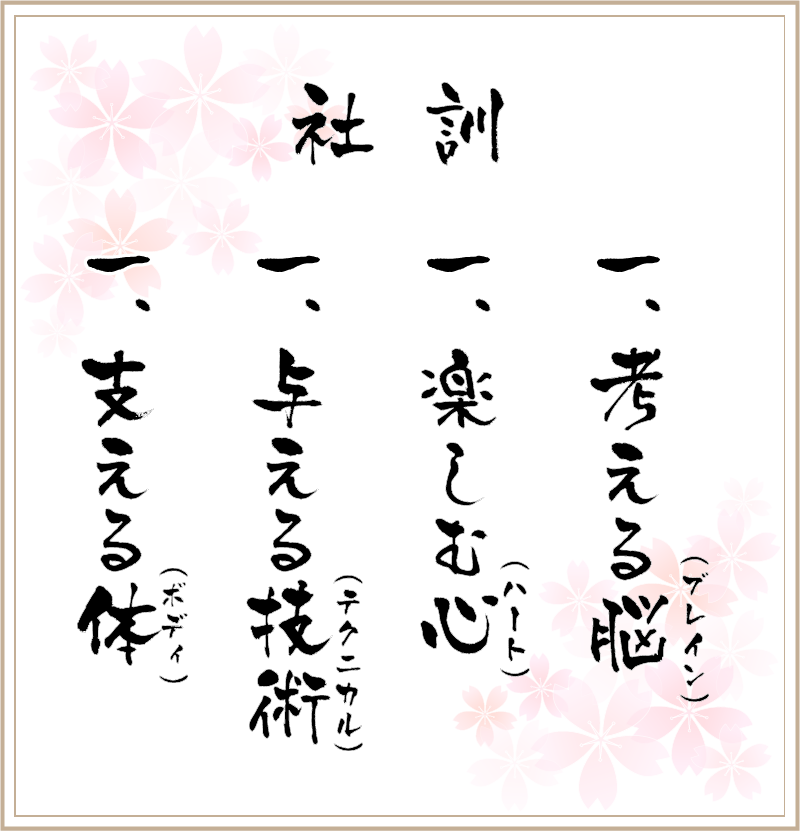 社訓
一、考える脳（ブレイン）
一、楽しむ心（ハート）
一、与える技術（テクニカル）
一、支える体（ボディ）